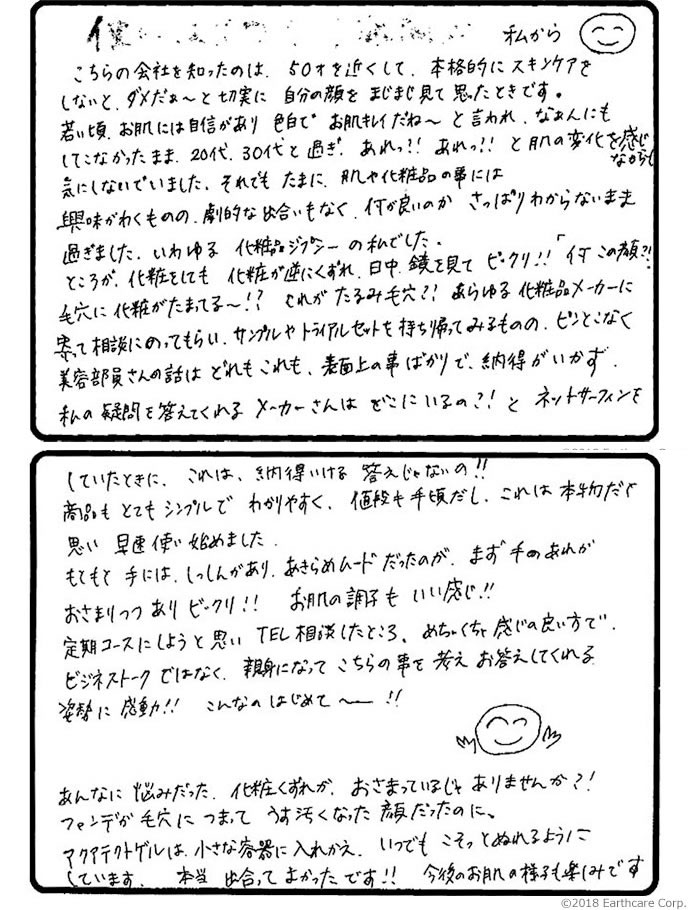 私から
こちらの会社を知ったのは、50才を近くして、本格的にスキンケアを
しないと、ダメだぁ〜と切実に 自分の顔を まじまじ見て 思ったときです。
若い頃、お肌には自信があり 色白で お肌キレイだね〜 と言われ、なぁんにも
してこなかったまま、20代、30代と過ぎ、あれっ!! あれっ!! と 肌の変化を感じながらも
気にしないでいました。それでも たまに、肌や化粧品の事には
興味がわくものの、劇的な出合いもなく、何が良いのか さっぱりわからないまま
過ぎました。いわゆる 化粧品ジプシーの私でした。
ところが、化粧をしても 化粧が逆にくずれ、日中、鏡を見て ビックリ!!「何この顔?!
毛穴に化粧がたまってる〜!? これが たるみ毛穴?! あらゆる化粧品メーカーに
寄って相談にのってもらい、サンプルやトライアルセットを持ち帰ってみるものの、ピンとこなく
美容部員さんの話は どれもこれも、表面上の事ばかりで、納得がいかず、
私の疑問を答えてくれる メーカーさんは どこにいるの?! と ネットサーフィンを
していたときに、これは、納得いける 答えじゃないの!!
商品も とても シンプルで わかりやすく、値段も手頃だし、これは本物だと
思い 早速使い始めました。
もともと 手には、しっしんがあり、あきらめムードだったのが、まず手のあれが
おさまりつつ あり ビックリ!! お肌の調子も いい感じ!!
定期コースにしようと思い TEL相談したところ、めちゃくちゃ感じの良い方で、
ビジネストークではなく、親身になって こちらの事を考え お答えしてくれる
姿勢に感動!! こんなの はじめて〜 !!
あんなに悩みだった、化粧くずれが、おさまっているじゃ ありませんか?!
ファンデが毛穴に つまって うす汚くなった 顔だったのに。
アクアテクトゲルは、小さな容器に入れかえ、いつでも こそっとぬれるように
しています。 本当 出合って よかったです!! 今後のお肌の様子も楽しみです
©2018 Earthcare Corp.